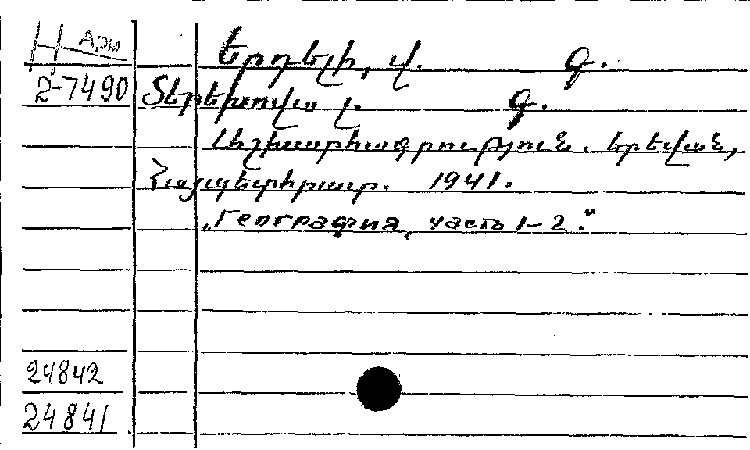 Н Арм
2-7490
Երդելի, Վ. Գ.
Տերեխովա Լ. Գ.
Աշխարհագրություն. Երևան,
Հայպետհրատ. 1941.
„География, часть 1-2."
24842
24841